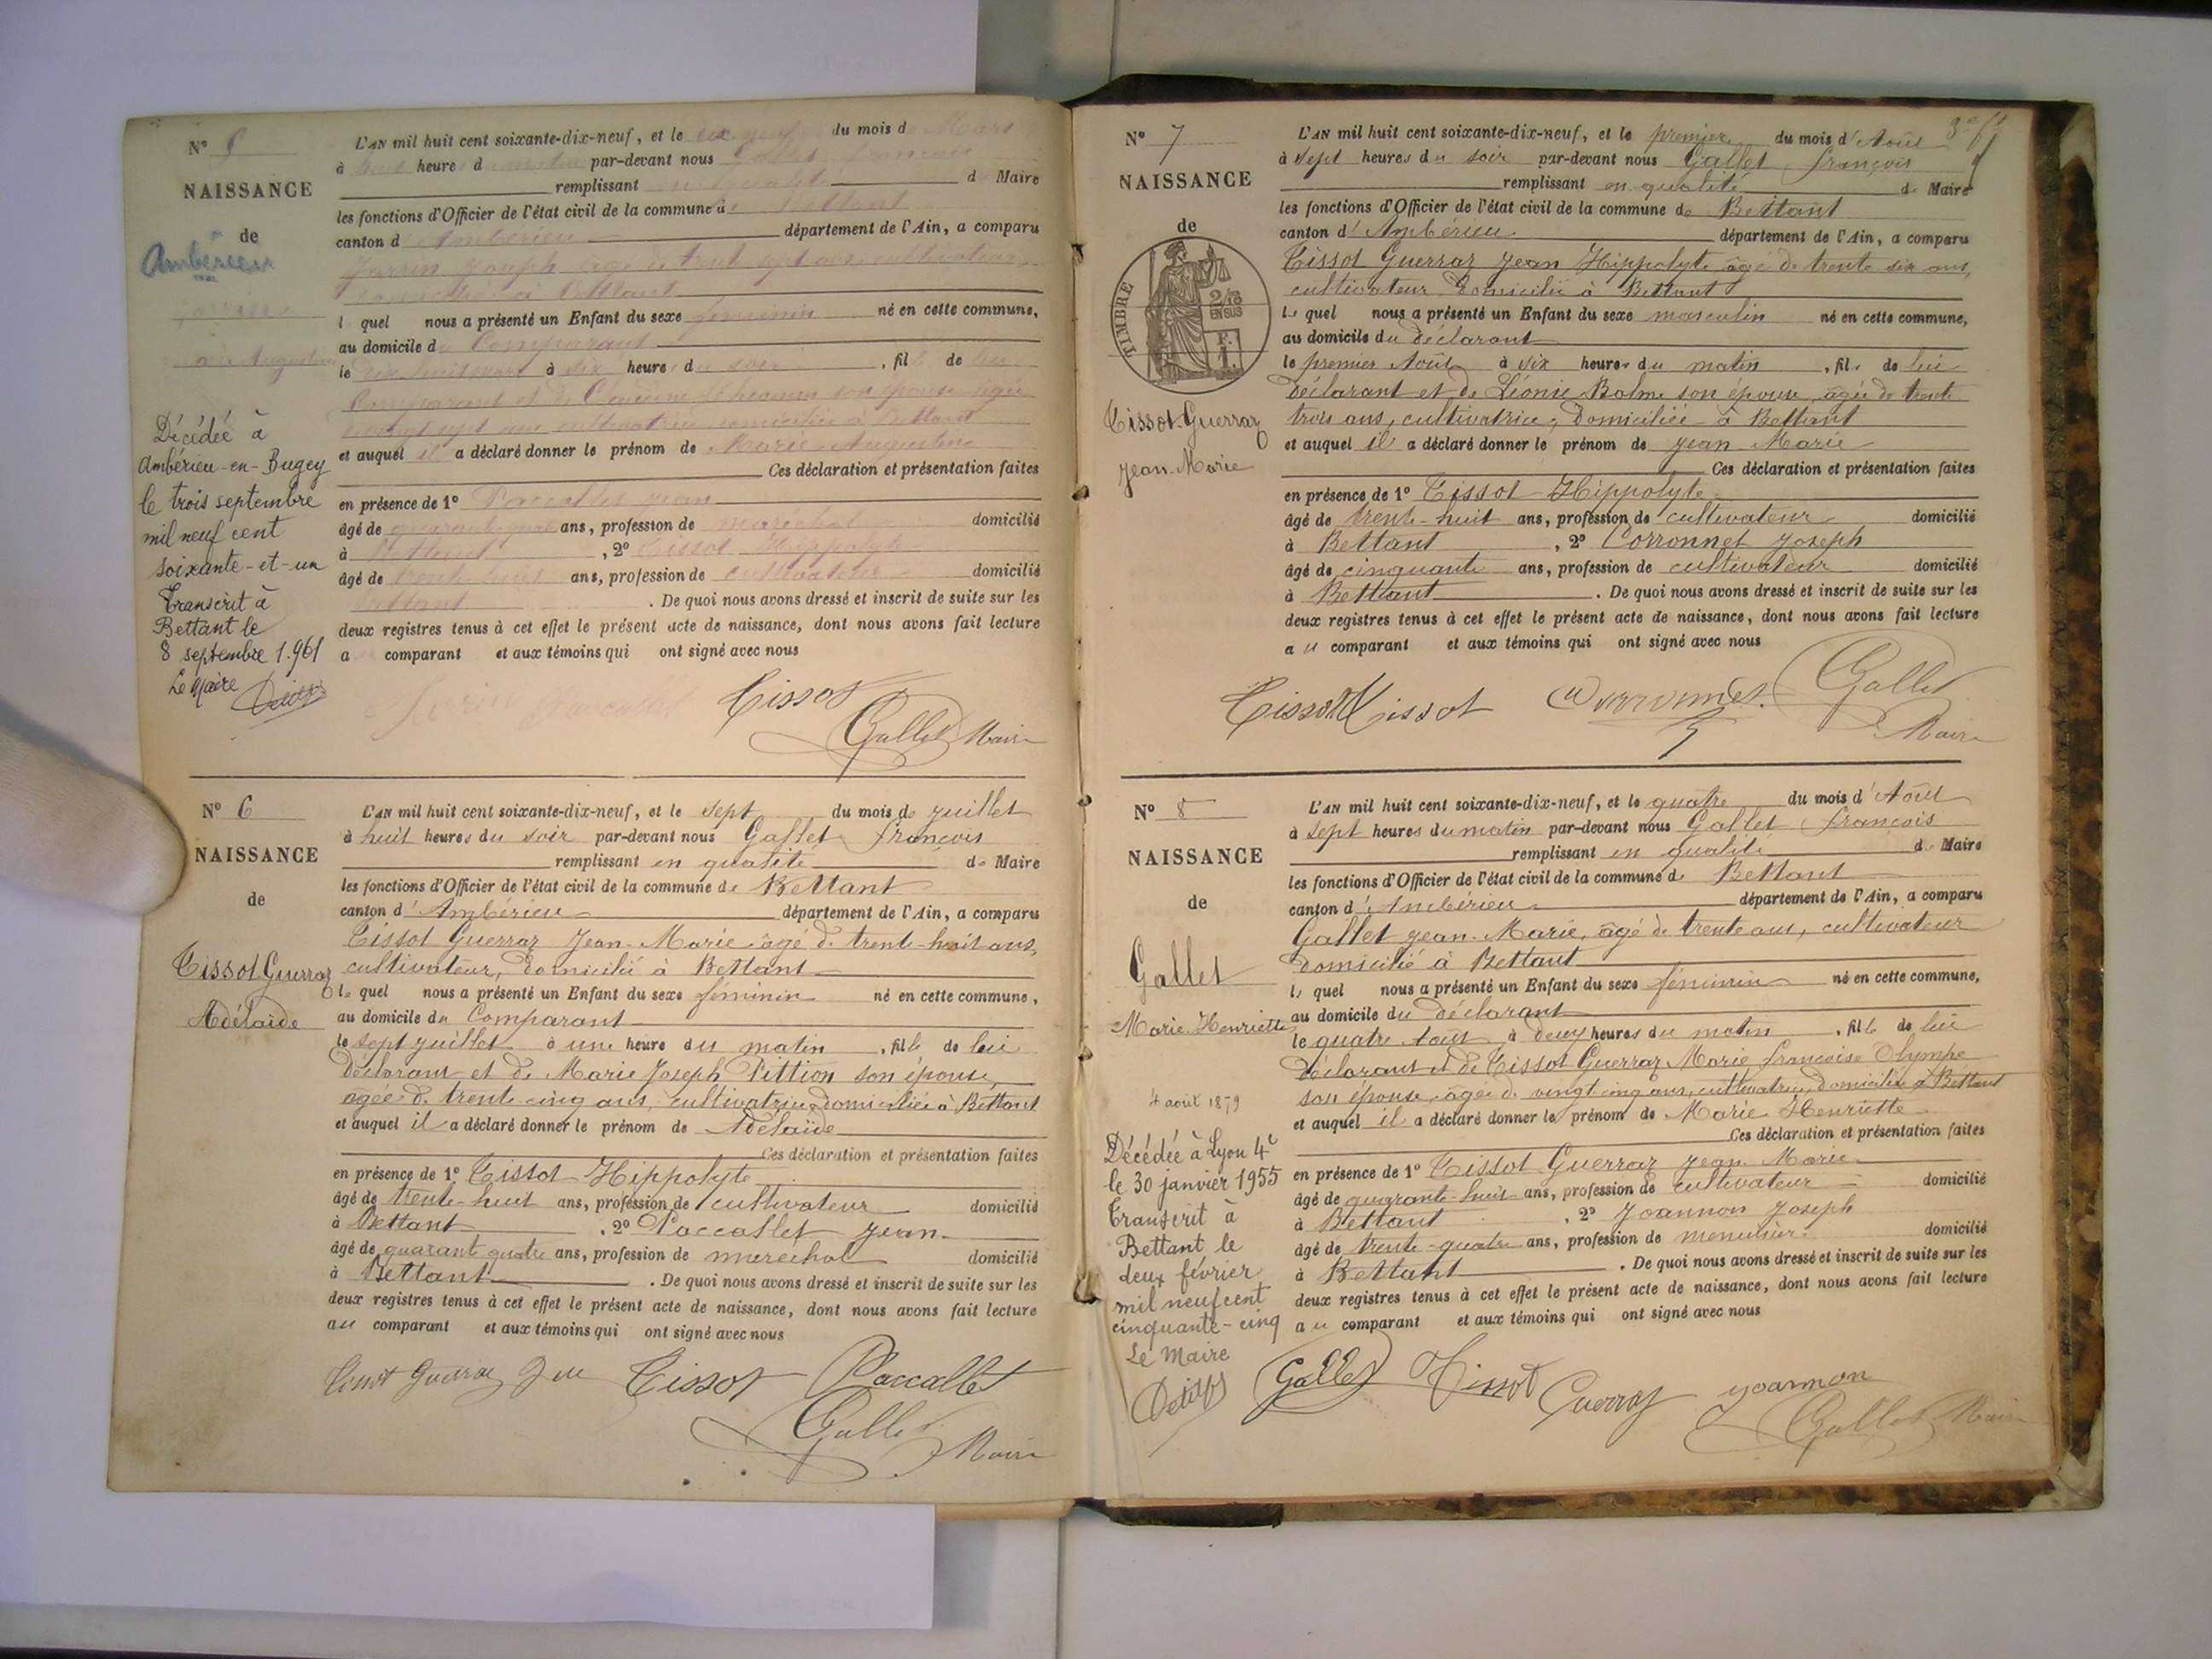 N° 5
NAISSANCE
de
Ambérieu
Décédée à
Ambérieu-en-Bugey
le trois septembre
mil neuf cent
soixante-et-un
Transcrit à
Bettant le
8 septembre 1.961
Le Maire
L'AN mil huit cent soixante-dix-neuf, et le dix neuf du mois d Mars
à huit heures du matin par-devant nous Gallet François
remplissant en qualité de Maire
les fonctions d'Officier de l'état civil de la commune de Bettant
canton d'Ambérieu département de l'Ain, a comparu
Jarrin Joseph âgé de trente sept ans cultivateur
domicilié à Bettant
lequel nous a présenté un Enfant du sexe féminin né en cette commune,
au domicile du Comparant
le dix huit mars à six heures du soir, fille de lui
Comparant et de son épouse âgée
vingt sept ans cultivatrice domiciliée à Bettant
et auquel il a déclaré donner le prénom de Marie Augustine
Ces déclaration et présentation faites
en présence de 1° Paccallet Jean
âgé de quarante quatre ans, profession de maréchal domicilié
à Bettant, 2° Tissot Hippolyte
âgé de trente huit ans, profession de cultivateur domicilié
Bettant. De quoi nous avons dressé et inscrit de suite sur les
deux registres tenus à cet effet le présent acte de naissance, dont nous avons fait lecture
a comparant et aux témoins qui ont signé avec nous
Jarrin Paccallet Tissot
Gallet Maire
N° 6
NAISSANCE
de
Tissot Guerraz
Adélaïde
L'AN mil huit cent soixante-dix-neuf, et le sept du mois de juillet
à huit heures du soir par-devant nous Gallet François
remplissant en qualité de Maire
les fonctions d'Officier de l'état civil de la commune de Bettant
canton d'Ambérieu département de l'Ain, a comparu
Tissot Guerraz Jean-Marie âgé de trente-huit ans,
cultivateur, domicilié à Bettant
lequel nous a présenté un Enfant du sexe féminin né en cette commune,
au domicile du Comparant
le sept juillet à une heure du matin, fille de lui
déclarant et de Marie Joseph Pittion son épouse,
agée de trente cinq ans, cultivatrice domiciliée à Bettant
et auquel il a déclaré donner le prénom de Adélaïde
Ces déclaration et présentation faites
en présence de 1° Tissot Hippolyte
âgé de trente-huit ans, profession de cultivateur domicilié
à Bettant, 2° Paccallet Jean
âgé de quarante quatre ans, profession de marechal domicilié
à Bettant. De quoi nous avons dressé et inscrit de suite sur les
deux registres tenus à cet effet le présent acte de naissance, dont nous avons fait lecture
au comparant et aux témoins qui ont signé avec nous
Tissot Guerraz Tissot Paccallet
Gallet Maire
N° 7
NAISSANCE
de
TIMBRE
2/10 EN SUS
Tissot-Guerraz
Jean-Marie
L'AN mil huit cent soixante-dix-neuf, et le premier du mois d'Août
à sept heures du soir par-devant nous Gallet François
remplissant en qualité de Maire
les fonctions d'Officier de l'état civil de la commune de Bettant
canton d'Ambérieu département de l'Ain, a comparu
Tissot Guerraz Jean Hippolyte âgé de trente six ans,
cultivateur domicilié à Bettant
lequel nous a présenté un Enfant du sexe masculin né en cette commune,
au domicile du déclarant
le premier Août à dix heures du matin, fils de lui
déclarant et de Léonie Balme son épouse, âgée de trente
trois ans, cultivatrice, domiciliée à Bettant
et auquel il a déclaré donner le prénom de Jean Marie
Ces déclaration et présentation faites
en présence de 1° Tissot Hippolyte
âgé de trente-huit ans, profession de cultivateur domicilié
à Bettant, 2° Corronnet Joseph
âgé de cinquante ans, profession de cultivateur domicilié
à Bettant. De quoi nous avons dressé et inscrit de suite sur les
deux registres tenus à cet effet le présent acte de naissance, dont nous avons fait lecture
au comparant et aux témoins qui ont signé avec nous
Tissot Tissot Corronnet Gallet
Maire
N° 8
NAISSANCE
de
Gallet
Marie Henriette
4 août 1879
Décédée à Lyon 4e
le 30 janvier 1955
Transcrit à
Bettant le
deux février
mil neuf cent
cinquante-cinq
Le Maire
L'AN mil huit cent soixante-dix-neuf, et le quatre du mois d'Août
à sept heures du matin par-devant nous Gallet François
remplissant en qualité de Maire
les fonctions d'Officier de l'état civil de la commune de Bettant
canton d'Ambérieu département de l'Ain, a comparu
Gallet Jean-Marie, âgé de trente ans, cultivateur
domicilié à Bettant
lequel nous a présenté un Enfant du sexe féminin né en cette commune,
au domicile du déclarant
le quatre août à deux heures du matin, fille de lui
déclarant et de Tissot Guerraz Marie Françoise Olympe
son épouse âgée de vingt cinq ans, cultivatrice domiciliée à Bettant
et auquel il a déclaré donner les prénom de Marie Henriette
Ces déclaration et présentation faites
en présence de 1° Tissot Guerraz Jean Marie
âgé de quarante-huit ans, profession de cultivateur domicilié
à Bettant, 2° Joannon Joseph
âgé de trente-quatre ans, profession de menuisier domicilié
à Bettant. De quoi nous avons dressé et inscrit de suite sur les
deux registres tenus à cet effet le présent acte de naissance, dont nous avons fait lecture
au comparant et aux témoins qui ont signé avec nous
Gallet Tissot Guerraz Joannon
Gallet Maire